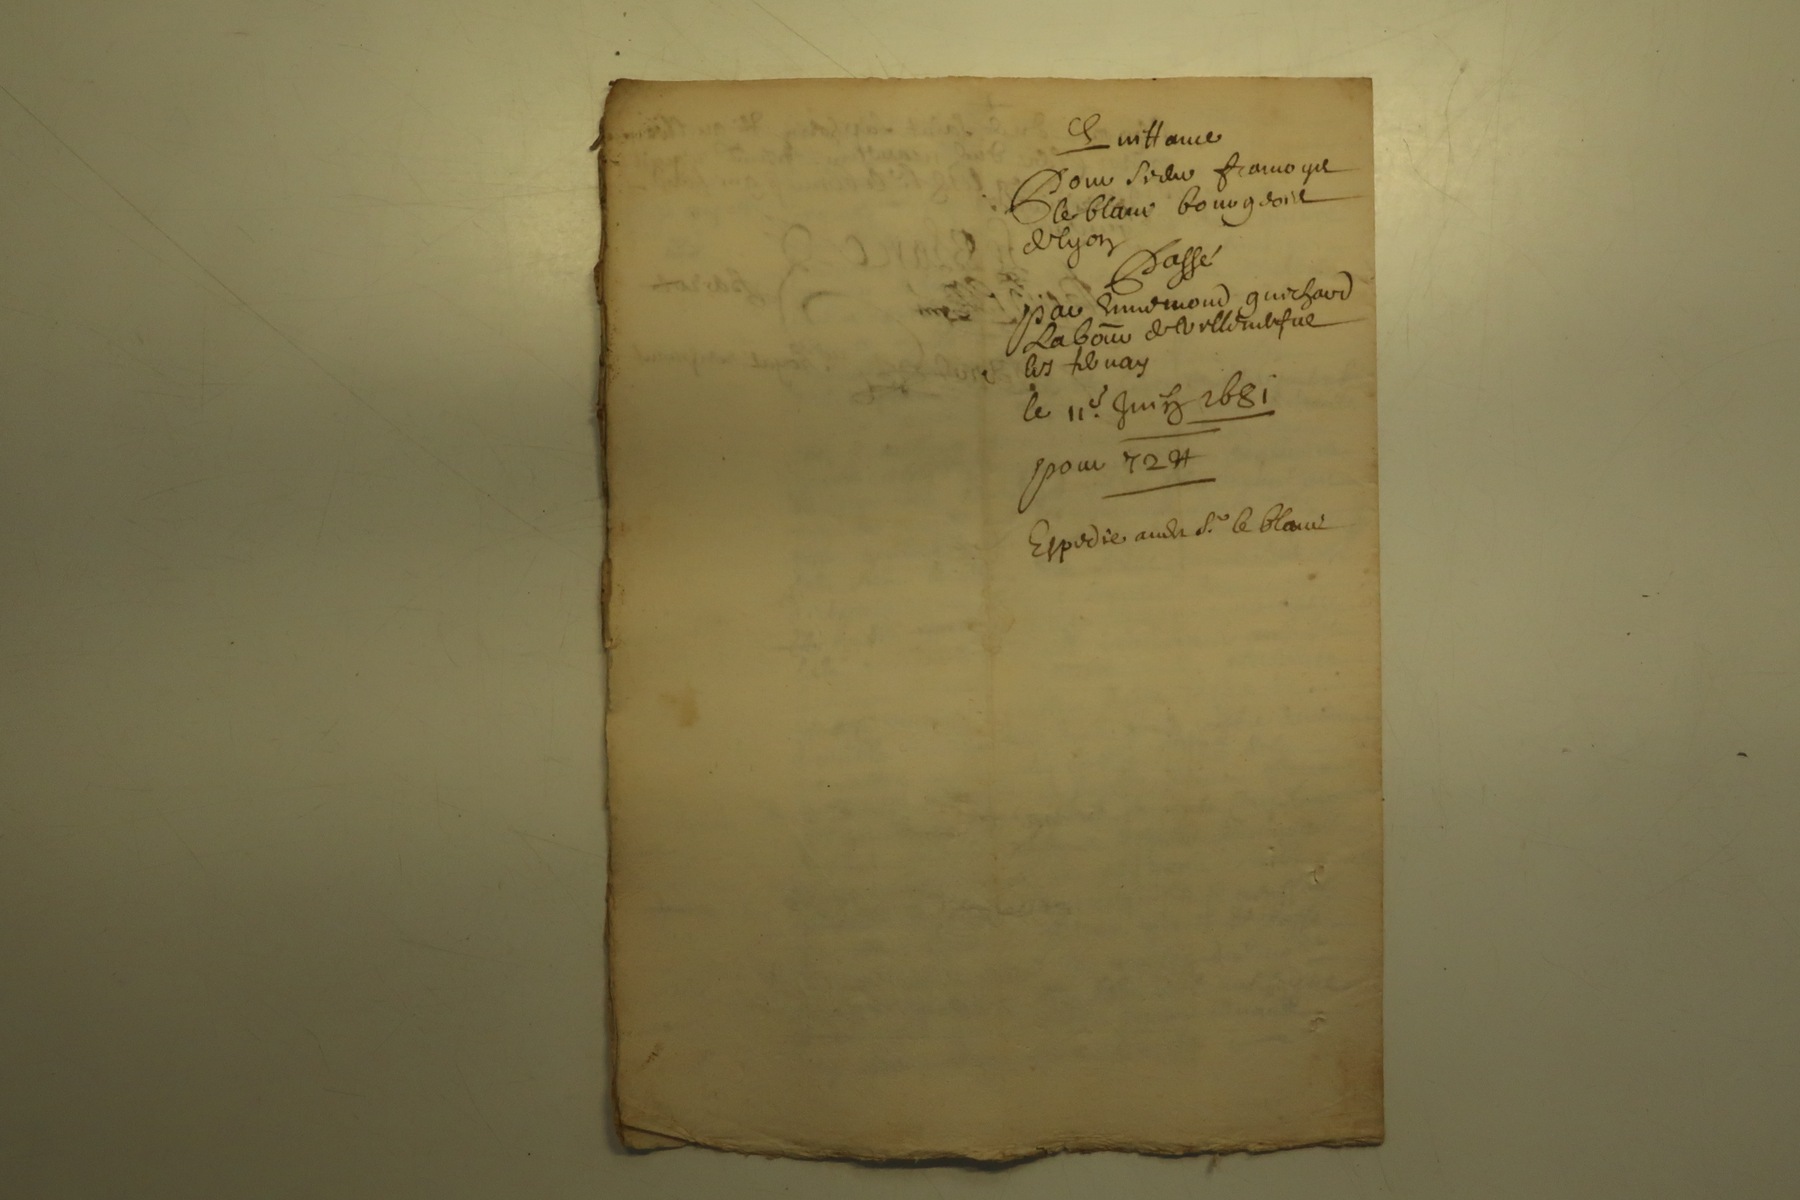 Quittance
Pour Sieur françois
le blanc bourgeois
de lyon
Passé
par Ennemond guichard
Labour de Villeneufue
les
le 11e Juin 1681
pour 72 ₶
Expedie audit Sr le blanc